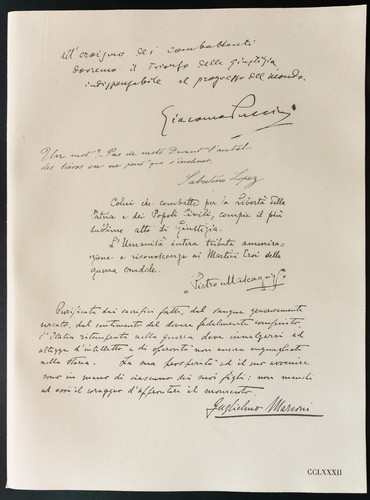 All'eroismo dei combattenti
dovremo il trionfo della giustizia
indispensabile al progresso del mondo.
Giacomo Puccini
Un mot? - Pas de mots. Devant l'autel
des héros on ne peut que s'incliner.
Sabatino Lopez
Colui che combatte per la Libertà della
Patria e dei Popoli Civili, compie il più
sublime atto di Giustizia.
L'Umanità intera tributa ammira-
zione e riconoscenza ai Martiri Eroi della
guerra crudele.
Pietro Mascagni
Purificata dai sacrifici fatti, dal sangue generosamente
versato, dal sentimento del dovere fedelmente compiuto,
l'Italia ritemprata nella guerra deve innalzarsi ad
altezza d'intelletto e di operosità non ancora eguagliata
nella storia. La sua prosperità ed il suo avvenire
sono in mano di ciascuno dei suoi figli: non manchi
ad essi il coraggio d'affrontare il momento.
Guglielmo Marconi
CCLXXXII